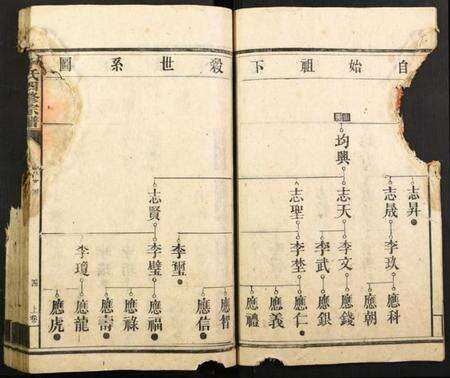 自始祖下穀世系圖
均興
志昇
志晟
志天
志聖
志賢
李玖
李文
李武
李埜
李璽
李璧
李瓊
應科
應朝
應錢
應銀
應仁
應義
應禮
應智
應信
應福
應祿
應壽
應龍
應虎
氏四修宗譜